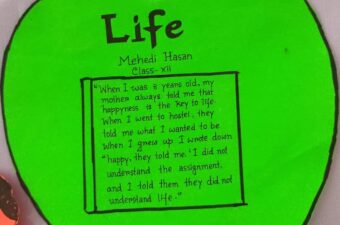 Life
Mehedi Hasan
Class-XII
"When I was 5 years old, my
mother always told me that
happyness is the key to life.
When I went to hostel, they
told me what I wanted to be
when I grew up I wrote down
"happy, they told me.' I did not
understand the assignment,
and I told them they did not
understand life."